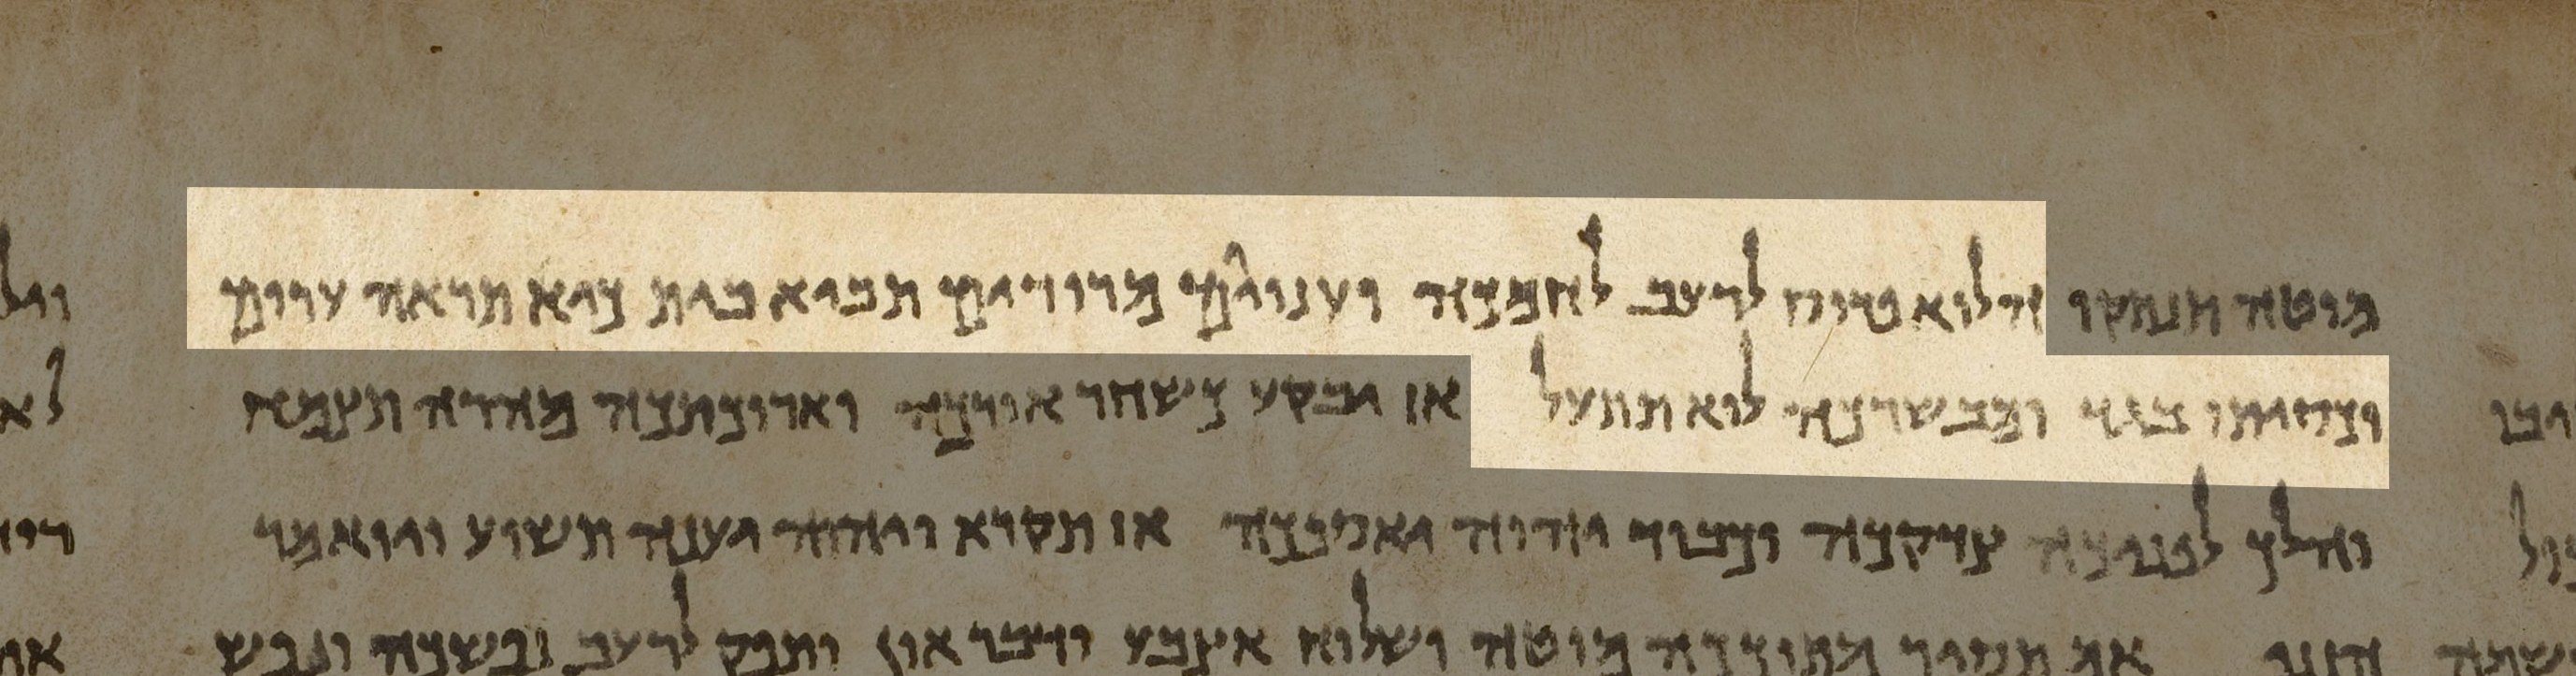 מוטה תנתקו הלוא פרוס לרעב לחמכה ועניים מרודים תביא בית כיא תראה ערום
וכסיתו בגד ומבשרכה לוא תתעל אז יבקע כשחר אורכה וארוכתכה מהרה תצמח
והלך לפניכה צדקכה וכבוד יהוה יאספכה אז תקרא ויהוה יענה תשוע ויואמר
הנני אם תסיר מתוככה מוטה ושלוח אצבע ודבר און ותפק לרעב נפשכה ונפש